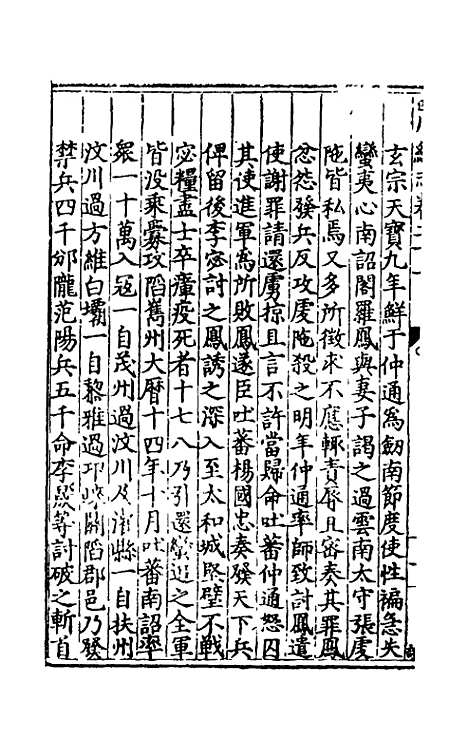 玄宗天寶九年鮮于仲通為劒南節度使性褊急失
蠻夷心南詔閣羅鳳與妻子謁之過雲南太守張虔
陁皆私焉又多所徵求不應輒責辱且密奏其罪鳳
忿怨發兵反攻虔陁殺之明年仲通率師致討鳳遣
使謝罪請還虜掠且言不許當歸命吐蕃仲通怒囚
其使進軍為所敗鳳遂臣吐蕃楊國忠奏發天下兵
俾留後李宓討之鳳誘之深入至太和城堅壁不戰
宓糧盡士卒瘴疫死者十七八乃引還蠻追之全軍
皆没乘釁攻䧟嶲州大曆十四年十月吐蕃南詔率
衆一十萬入宼一自茂州過汶川及灌縣一自扶州
汶川過方維白壩一自黎雅過卭崍關䧟郡邑乃發
禁兵四千邠隴范陽兵五千命李晟等討破之斬首